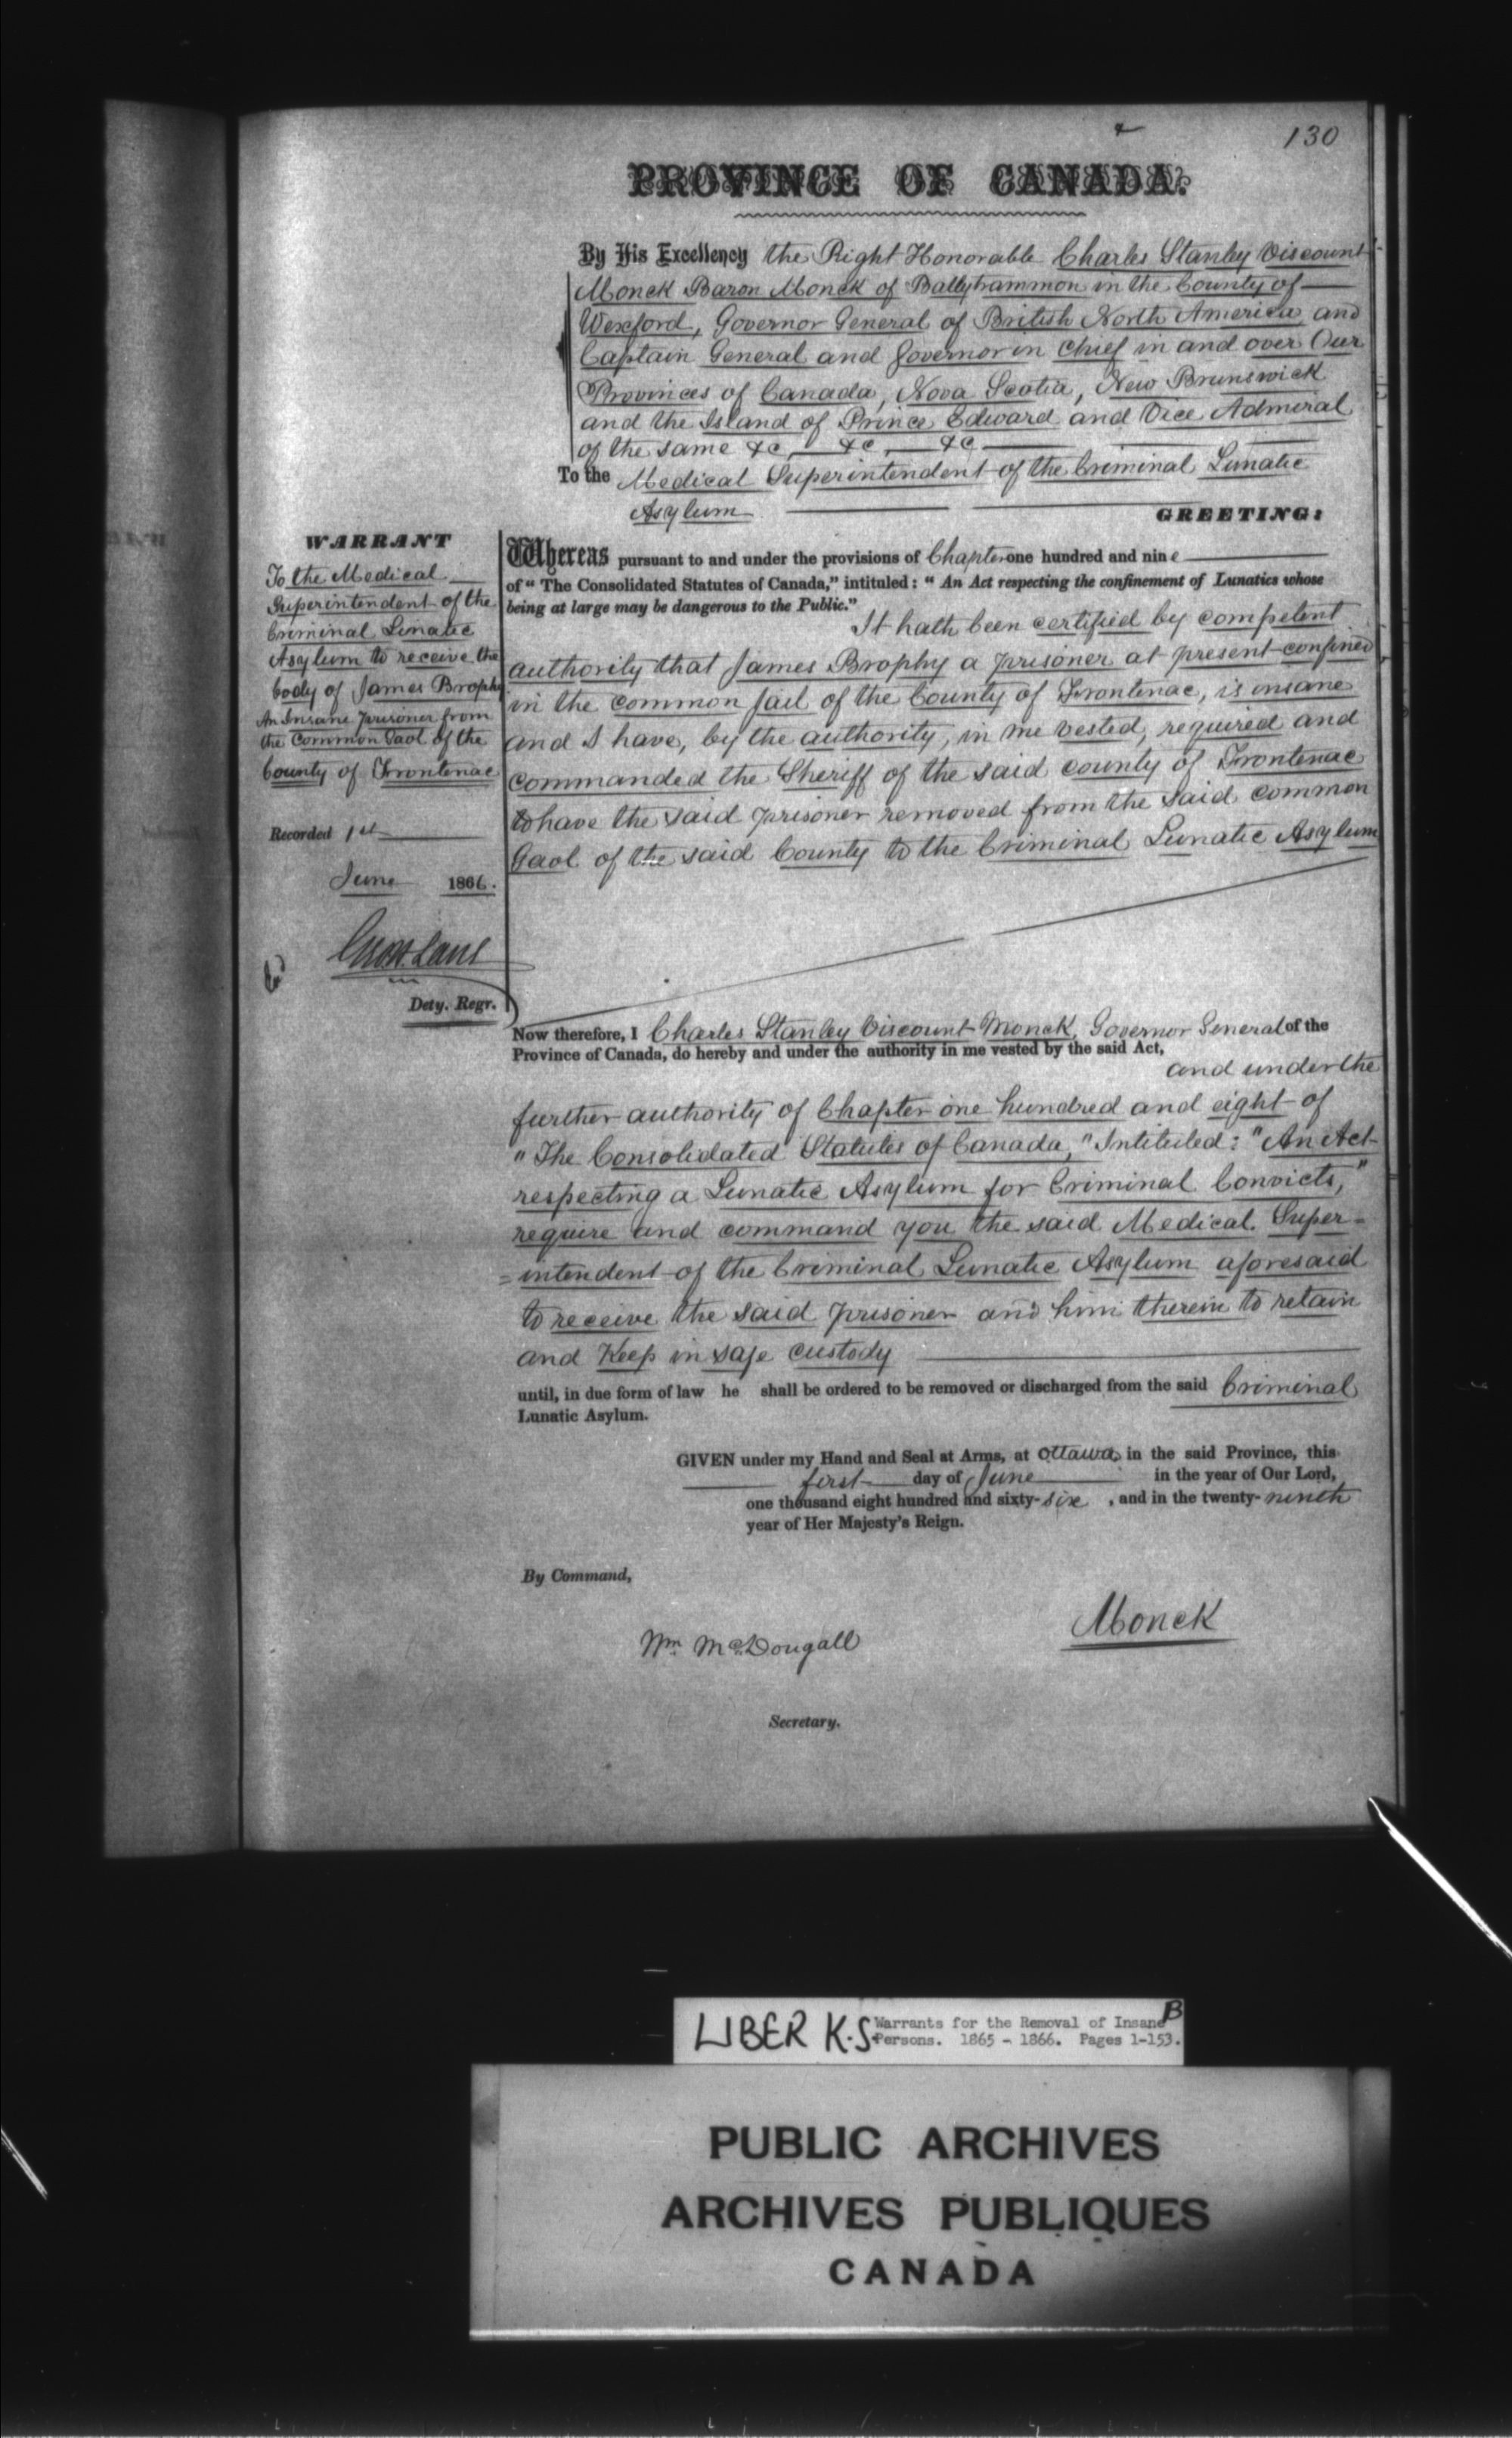 130
PROVINCE OF CANADA.
By His Excellency the Right Honorable Charles Stanley Viscount
Monck Baron Monck of Ballytrammon in the County of
Wexford, Governor General of British North America, and
Captain General and Governor in Chief in and over Our
Provinces of Canada, Nova Scotia, New Brunswick
and the Island of Prince Edward and Vice Admiral
of the same &c, &c, &c
To the Medical Superintendent of the Criminal Lunatic
Asylum
GREETING:
WARRANT
To the Medical
Superintendent of the
Criminal Lunatic
Asylum to receive the
body of James Brophy
An Insane prisoner from
the Common Gaol of the
County of Frontenac
Recorded 1st
June 1866.
Dety. Regr.
Whereas pursuant to and under the provisions of Chapter one hundred and nine
of "The Consolidated Statutes of Canada," intituled: "An Act respecting the confinement of Lunatics whose
being at large may be dangerous to the Public."
It hath been certified by competent
authority that James Brophy a prisoner at present confined
in the common jail of the County of Frontenac, is insane
and I have, by the authority, in me vested, required and
commanded the Sheriff of the said county of Frontenac
to have the said prisoner removed from the said common
Gaol of the said County to the Criminal Lunatic Asylum
Now therefore, I Charles Stanley Viscount Monck, Governor General of the
Province of Canada, do hereby and under the authority in me vested by the said Act,
and under the
further authority of Chapter one hundred and eight of
"The Consolidated Statutes of Canada," Intituled: "An Act
respecting a Lunatic Asylum for Criminal Convicts,"
require and command you the said Medical. Super=
=intendent of the Criminal Lunatic Asylum aforesaid
to receive the said prisoner and him therein to retain
and Keep in safe custody
until, in due form of law he shall be ordered to be removed or discharged from the said Criminal
Lunatic Asylum.
GIVEN under my Hand and Seal at Arms, at Ottawa, in the said Province, this
first day of June in the year of Our Lord,
one thousand eight hundred and sixty-six, and in the twenty-ninth
year of Her Majesty's Reign.
By Command,
Monck
Wm McDougall
Secretary.
LIBER K.S. Warrants for the Removal of Insane B
Persons. 1865 - 1866. Pages 1-153.
PUBLIC ARCHIVES
ARCHIVES PUBLIQUES
CANADA